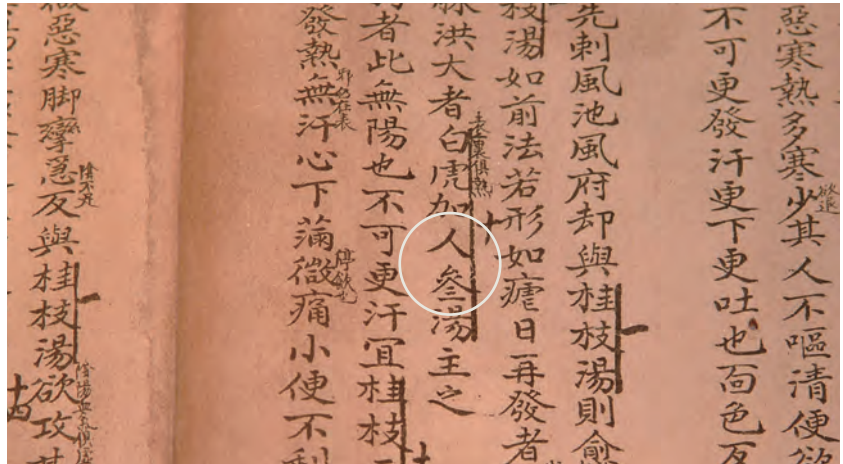 惡寒熱多寒少其人不嘔清便欲
欲退
不可更發汗更下更吐也面色反
先刺風池風府却與桂枝湯則愈
枝湯如前法若形如瘧日再發者
脉洪大者白虎加人參湯主之
表裏俱熱
者此無陽也不可更汗宜桂枝
發熱無汗心下滿微痛小便不利
邪仍在表
停飲也
微惡寒脚攣急反與桂枝湯欲攻其
陰不足